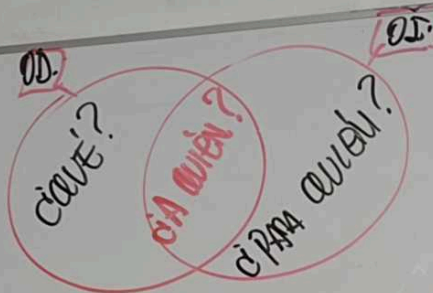 OD.
OI.
¿QUÉ?
¿A QUIÉN?
¿PARA QUIÉN?